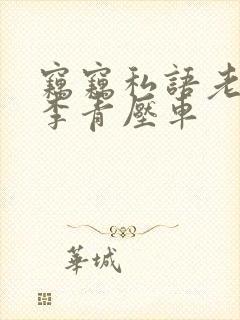 竊竊私語老
李青壓車
華城